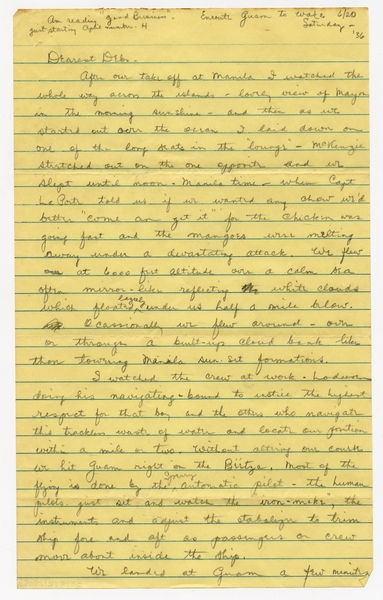 Am reading "Good Business." Enroute Guam to Wake 6/20
just starting Saturday - '36
Dearest Debs.
After our take off at Manila I watched the
whole way across the islands - lovely view of Mayon
in the morning sunshine - and then as we
started out over the ocean I laid down on
one of the long seats in the "lounge" - McKenzie
stretched out on the one opposite and we
slept until noon - Manila time - when Capt
La Porte told us if we wanted any chow we'd
better "come an get it" for the chicken was
going fast and the mangoes were melting
away under a devastating attack. We flew
at 6000 feet altitude over a calm sea
often mirror-like reflecting white clouds
which floated under us half a mile below.
Occasionally we flew around - over
or through a built-up cloud bank like
those towering Manila sun-set formations.
I watched the crew at work -
doing his navigating - bound to inspire the highest
respect for that boy and the others who navigate
this trackless waste of water and locate our position
within a mile or two. Without altering our course
we hit Guam right on the . Most of the
flying is done by the "automatic pilot - the human
pilots just sit and watch the "iron-mike", the
instruments and adjust the to trim
ship fore and aft as passengers or crew
move about inside the ship.
We landed at Guam a few minutes